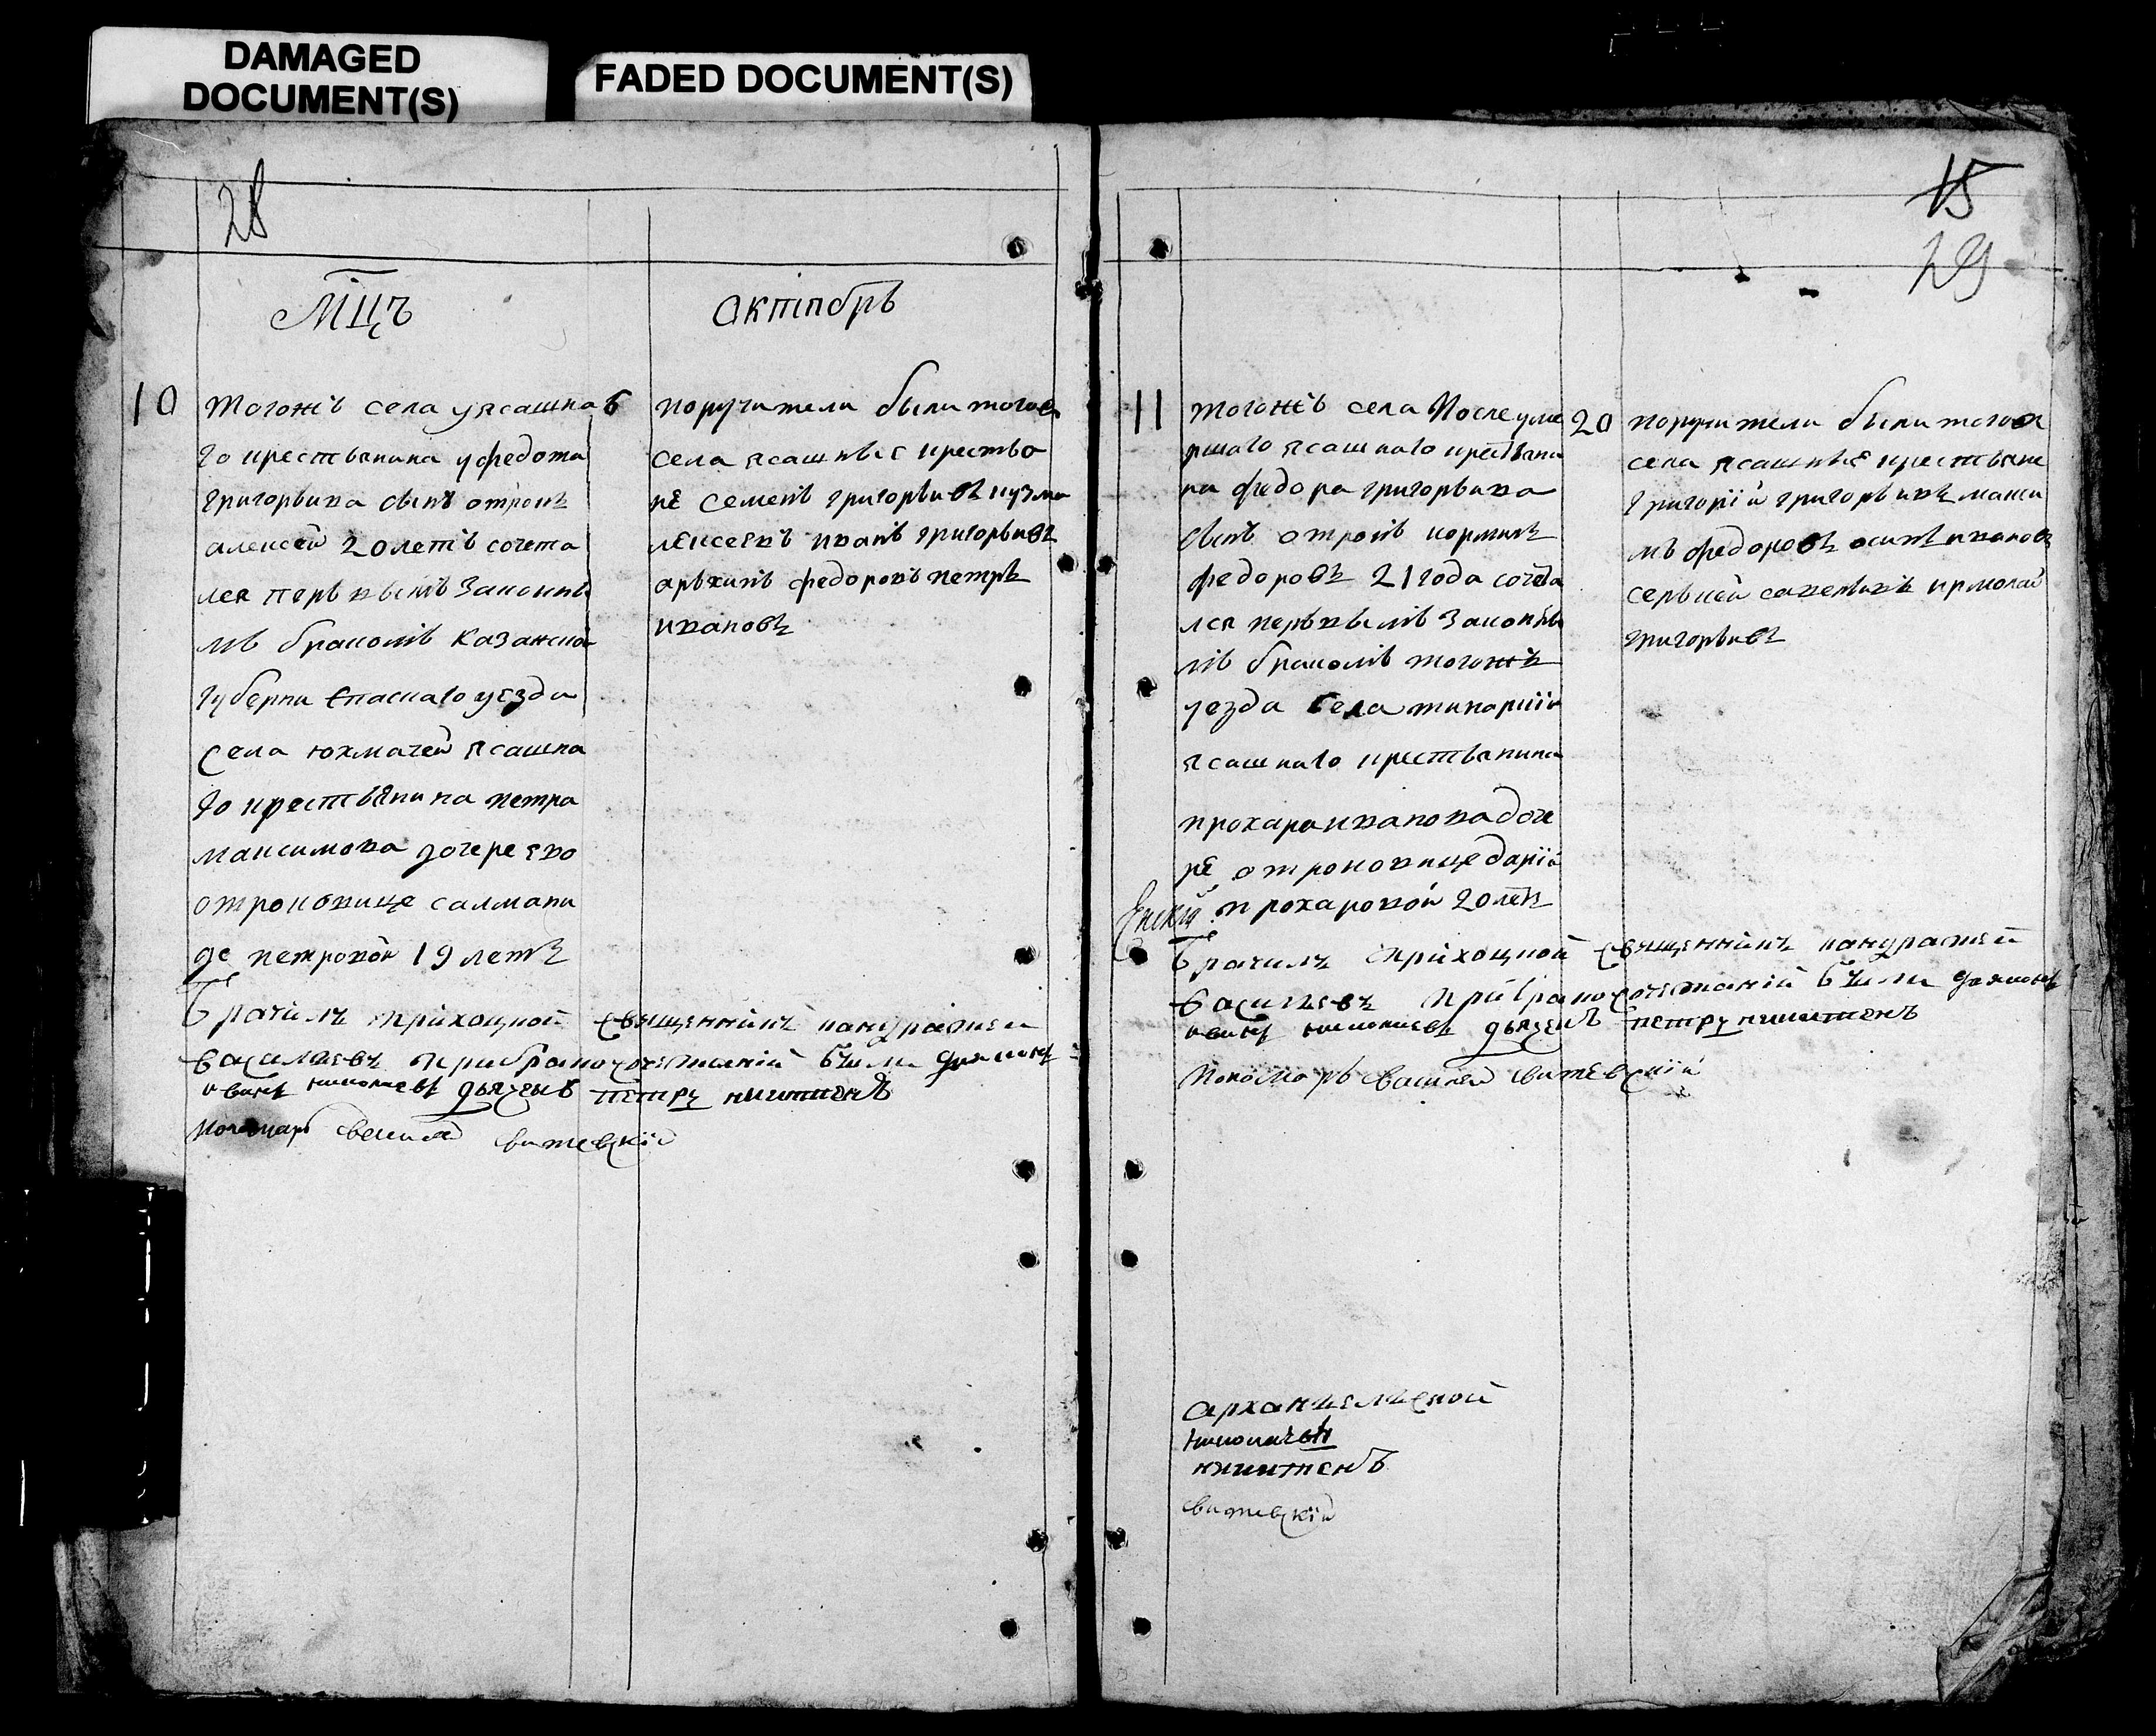 DAMAGED
DOCUMENT(S)
FADED DOCUMENT(S)
28
МЦЪ
Октябрь
10
тогожъ села уясашна
го крестьянина уфедота
григорьива сынъ отрокъ
алексей 20 летъ сочета
лся первымъ законны
мъ бракомъ казанской
губерни спаскаго уезда
села юхмачей ясашна
го крестьянина петра
максимова дочере ево
отроковице саломани
де петровой 19 летъ
6
поручители были тогож
села ясашные крестья
не семенъ григорьивъ кузма
лексеявъ иванъ григорьивъ
архипъ федоровъ петръ
ивановъ
Брачилъ приходной священникъ панкратей
василиевъ при бракосочетаний были дияконъ
иванъ николаевъ дьячекъ петръ никитенъ
пономарь василей витевский
15
29
11
тогожъ села После уме
ршаго ясашнаго крестьяни
на федора григорьива
сынъ отрокъ кормилъ
федоровъ 21 года сочета
лся первымъ законны
мъ бракомъ тогожъ
уезда села
ясашнаго крестьянина
прохара иванова доче
ре отроковице дарии
прохаровой 20 летъ
20
поручители были тогож
села ясашные крестьяне
григорий григорьивъ макси
мъ федоровъ осипъ ивановъ
сергией савельивъ ирмолай
григорьивъ
Брачилъ приходной священникъ панкратей
василиевъ при бракосочетаний были дияконъ
иванъ николаевъ дьячекъ петръ никитенъ
пономарь василей витевский
архангельской
николаевъ
никитенъ
витевский